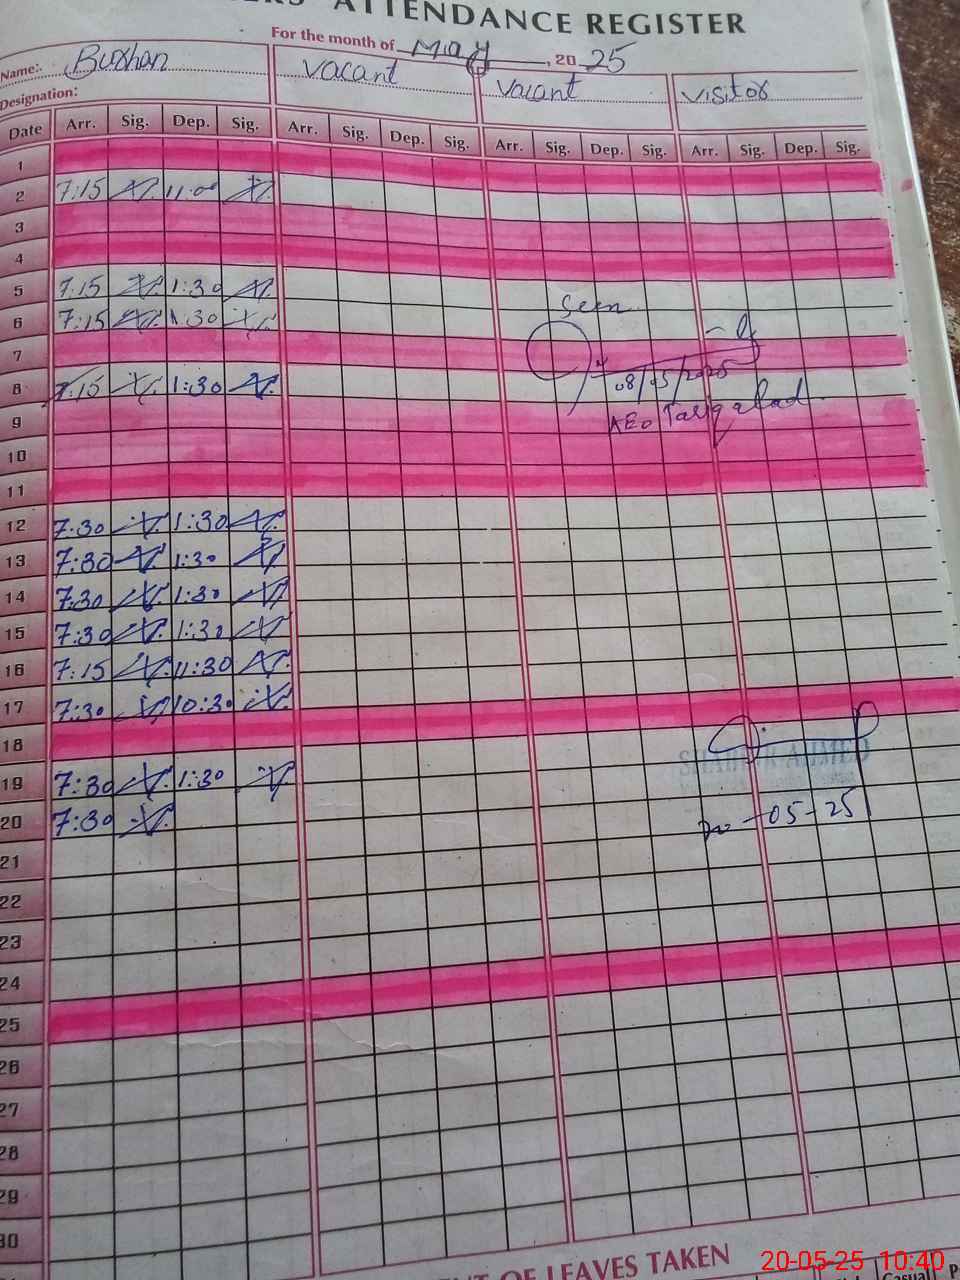 ATTENDANCE REGISTER
For the month of May, 20 25
Name:. Burhan vacant vacant visitor
Designation:
Date Arr. Sig. Dep. Sig. Arr. Sig. Dep. Sig. Arr. Sig. Dep. Sig. Arr. Sig. Dep. Sig.
1
2 7:15 11:00
3
4
5 7:15 1:30
Seen
6 7:15 1:30
7
8 7:15 1:30
08/05/2025
AEO Tariqabad
9
10
11
12 7:30 1:30
13 7:30 1:30
14 7:30 1:30
15 7:30 1:30
16 7:15 11:30
17 7:30 10:30
18
SHABIR AHMED
19 7:30 1:30
20 7:30
20-05-25
21
22
23
24
25
26
27
28
29
30
OF LEAVES TAKEN
Casual
20-05-25 10:40